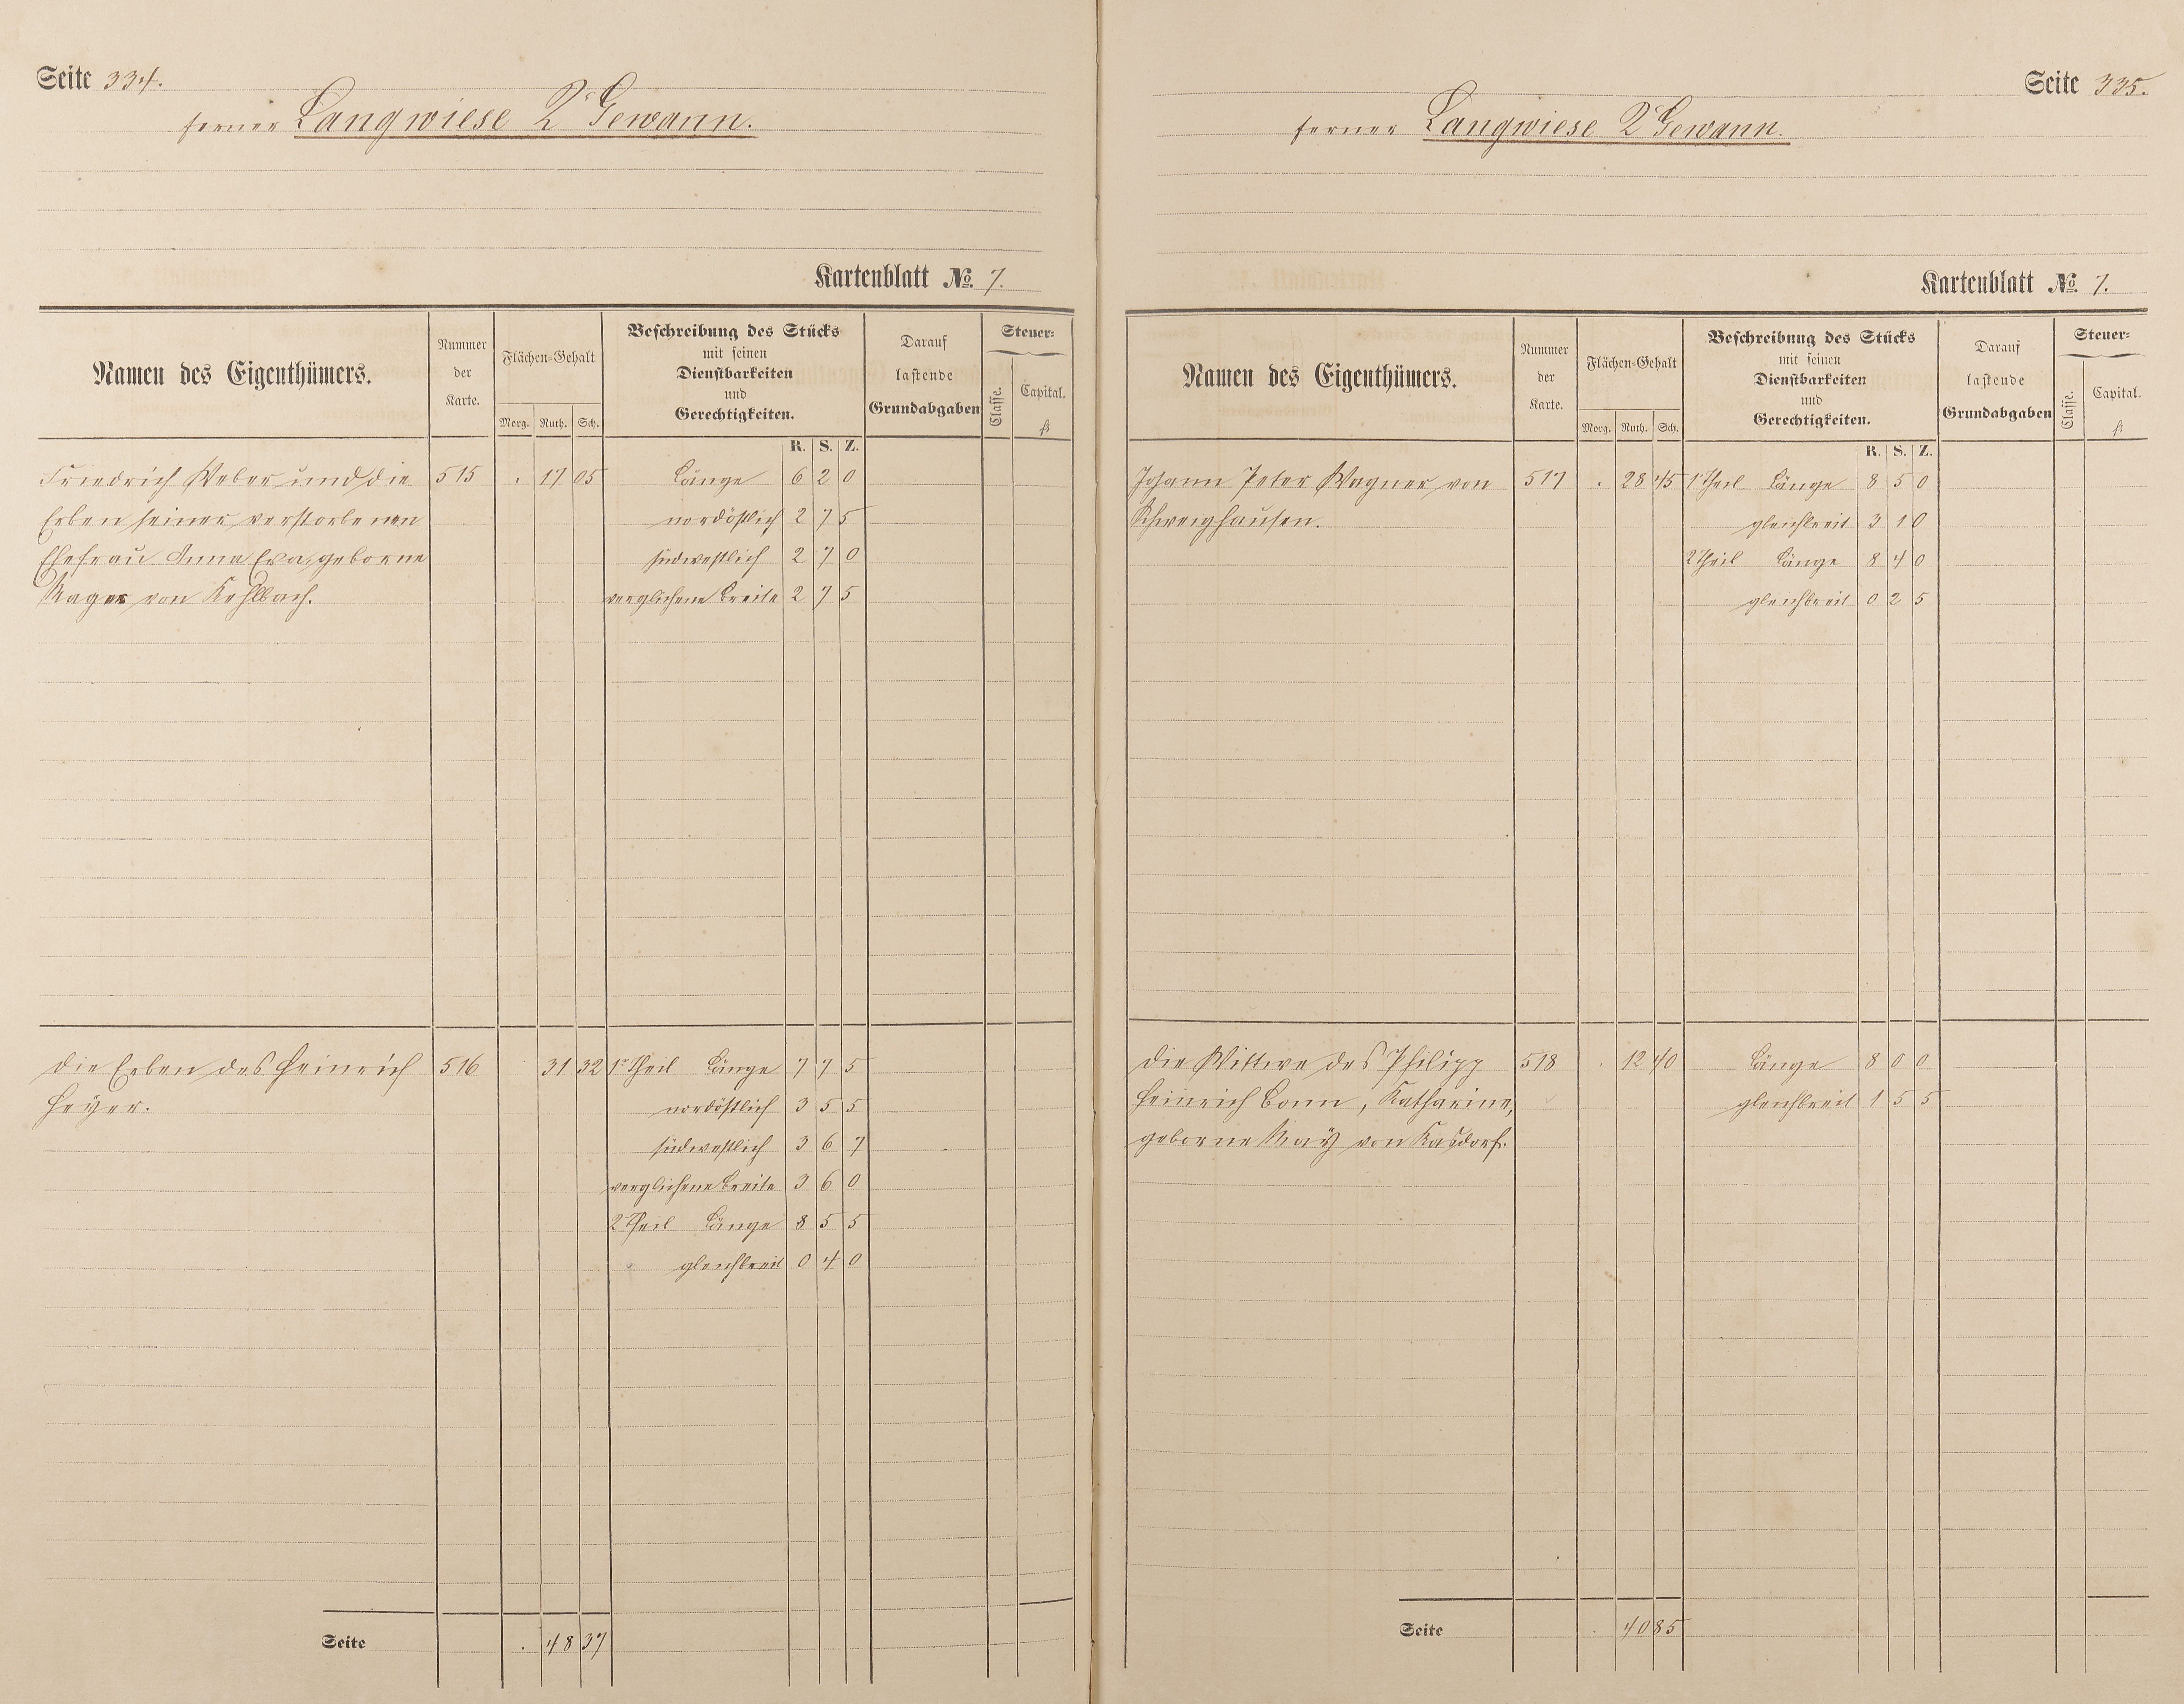 Seite 334.
ferner Langwiese 2r Gewann.
Kartenblatt No. 7.
Namen des Eigenthümers.
Nummer der Karte.
Flächen-Gehalt
Morg. Ruth. Sch.
Beschreibung des Stücks
mit seinen
Dienstbarkeiten
und
Gerechtigkeiten.
Darauf
lastende
Grundabgaben
Steuer-
Classe. Capital.
fl
R. S. Z.
Friedrich Weber und die 515 . 17 05 Länge 6 2 0
Erben seiner verstorbenen nordöstlich 2 7 5
Ehefrau Anna Eva, geborne südwestlich 2 7 0
von Kehlbach. verglichene Breite 2 7 5
Die Erben des Heinrich 516 . 31 32 1r Theil Länge 7 7 5
Heyer. nordöstlich 3 5 5
südwestlich 3 6 7
verglichene Breite 3 6 0
2r Theil Länge 8 5 5
gleichbreit 0 4 0
Seite . 48 37
Seite 335.
ferner Langwiese 2r Gewann.
Kartenblatt No. 7.
Namen des Eigenthümers.
Nummer der Karte.
Flächen-Gehalt
Morg. Ruth. Sch.
Beschreibung des Stücks
mit seinen
Dienstbarkeiten
und
Gerechtigkeiten.
Darauf
lastende
Grundabgaben
Steuer-
Classe. Capital.
fl
R. S. Z.
Johann Peter Wagner von 517 . 28 45 1r Theil Länge 8 5 0
Schweighausen. gleichbreit 3 1 0
2r Theil Länge 8 4 0
gleichbreit 0 2 5
Die Wittwe des Philipp 518 . 12 40 Länge 8 0 0
Heinrich Bonn, Katharine, gleichbreit 1 5 5
geborne May von Kasdorf.
Seite . 40 85